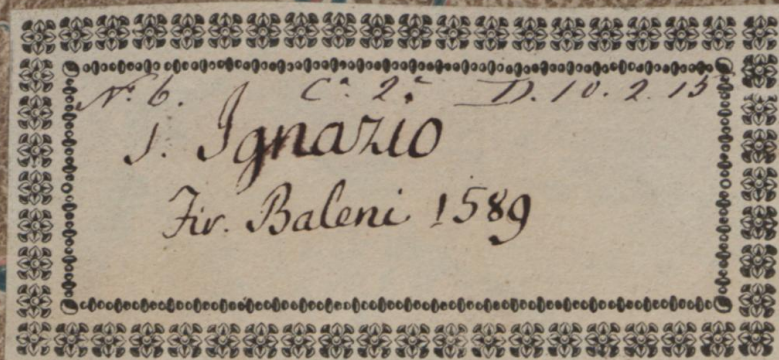 N.º 6. C.ª 2.ª D. 10. 2. 15
S. Ignazio
Fir. Baleni 1589